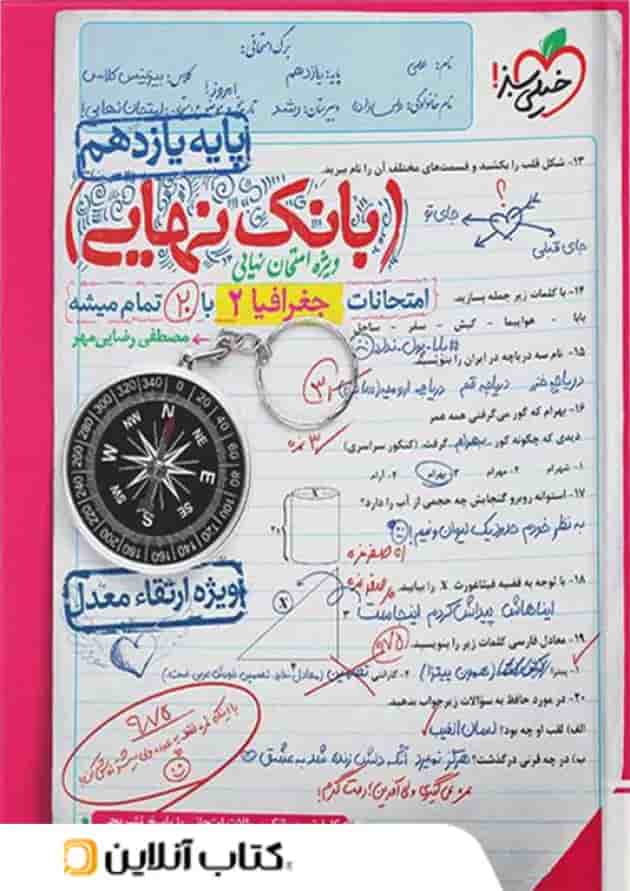 خیلی سبز!
برگ امتحانی:
نام:
پایه: یازدهم
کلاس: بیزینس کلاس
نام خانوادگی:
دبیرستان: رشد
پایه یازدهم
۱۳- شکل قلب را بکشید و قسمت‌های مختلف آن را نام ببرید.
؟
جای تو
جای قبلی
(بانک نهایی)
ویژه امتحان نهایی
امتحانات جغرافیا ۲ با ۲۰ تمام میشه
مصطفی رضایی‌مهر
۱۴- با کلمات زیر جمله بسازید.
بابا - هواپیما - کیش - سفر - ساحل
بابا پول ندارد
۱۵- نام سه دریاچه در ایران را بنویسید.
دریاچه خزر دریاچه قم دریاچه ارومیه
۱۶- بهرام که گور می‌گرفتی همه عمر
دیدی که چگونه گور بهرام گرفت. (کنکور سراسری)
۱- شهرام ۲- مهرام ۳- بهرام ۴- آرام
۱۷- استوانه روبرو گنجایش چه حجمی از آب را دارد؟
به نظر خودم حدود یک لیوان و نیم!
۱۸- با توجه به قضیه فیثاغورث X را بیابید.
X
۳
۴
ایناهاش پیداش کردم اینجاست
ویژه ارتقاء معدل
۱۹- معادل فارسی کلمات زیر را بنویسید.
۱- پیتزا
۲- گارانتی تضمین
۲۰- در مورد حافظ به سوالات زیر جواب بدهید.
الف) لقب او چه بود؟ لسان الغیب
ب) در چه قرنی درگذشت؟ هرگز نمیرد آنکه دلش زنده شد به عشق
۹/۷۵
0 20 40 60 80 100 120 140 160 180 200 220 240 260 280 300 320 340
N NE E SE S SW W NW
کتاب آنلاین